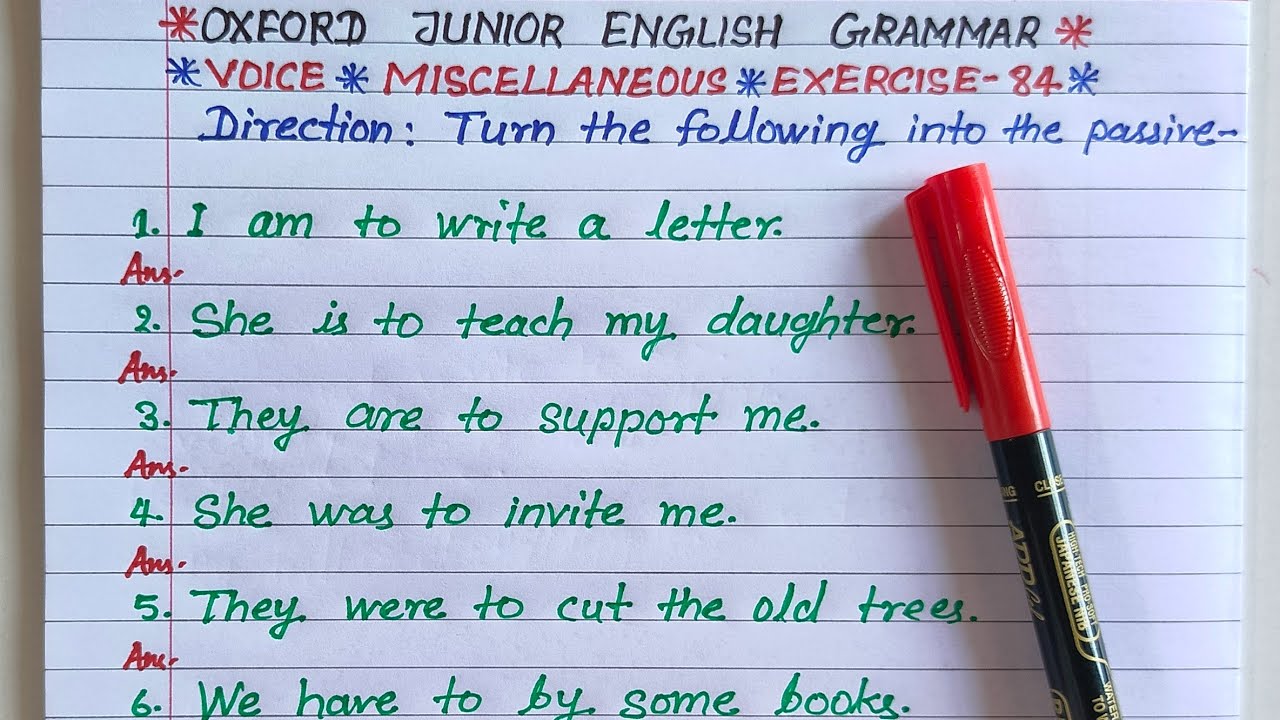 *OXFORD JUNIOR ENGLISH GRAMMAR*
*VOICE * MISCELLANEOUS * EXERCISE-84*
Direction: Turn the following into the passive-
1. I am to write a letter.
Ans.
2. She is to teach my daughter.
Ans.
3. They are to support me.
Ans.
4. She was to invite me.
Ans.
5. They were to cut the old trees.
Ans.
6. We have to by some books.
JAPANESE NIB